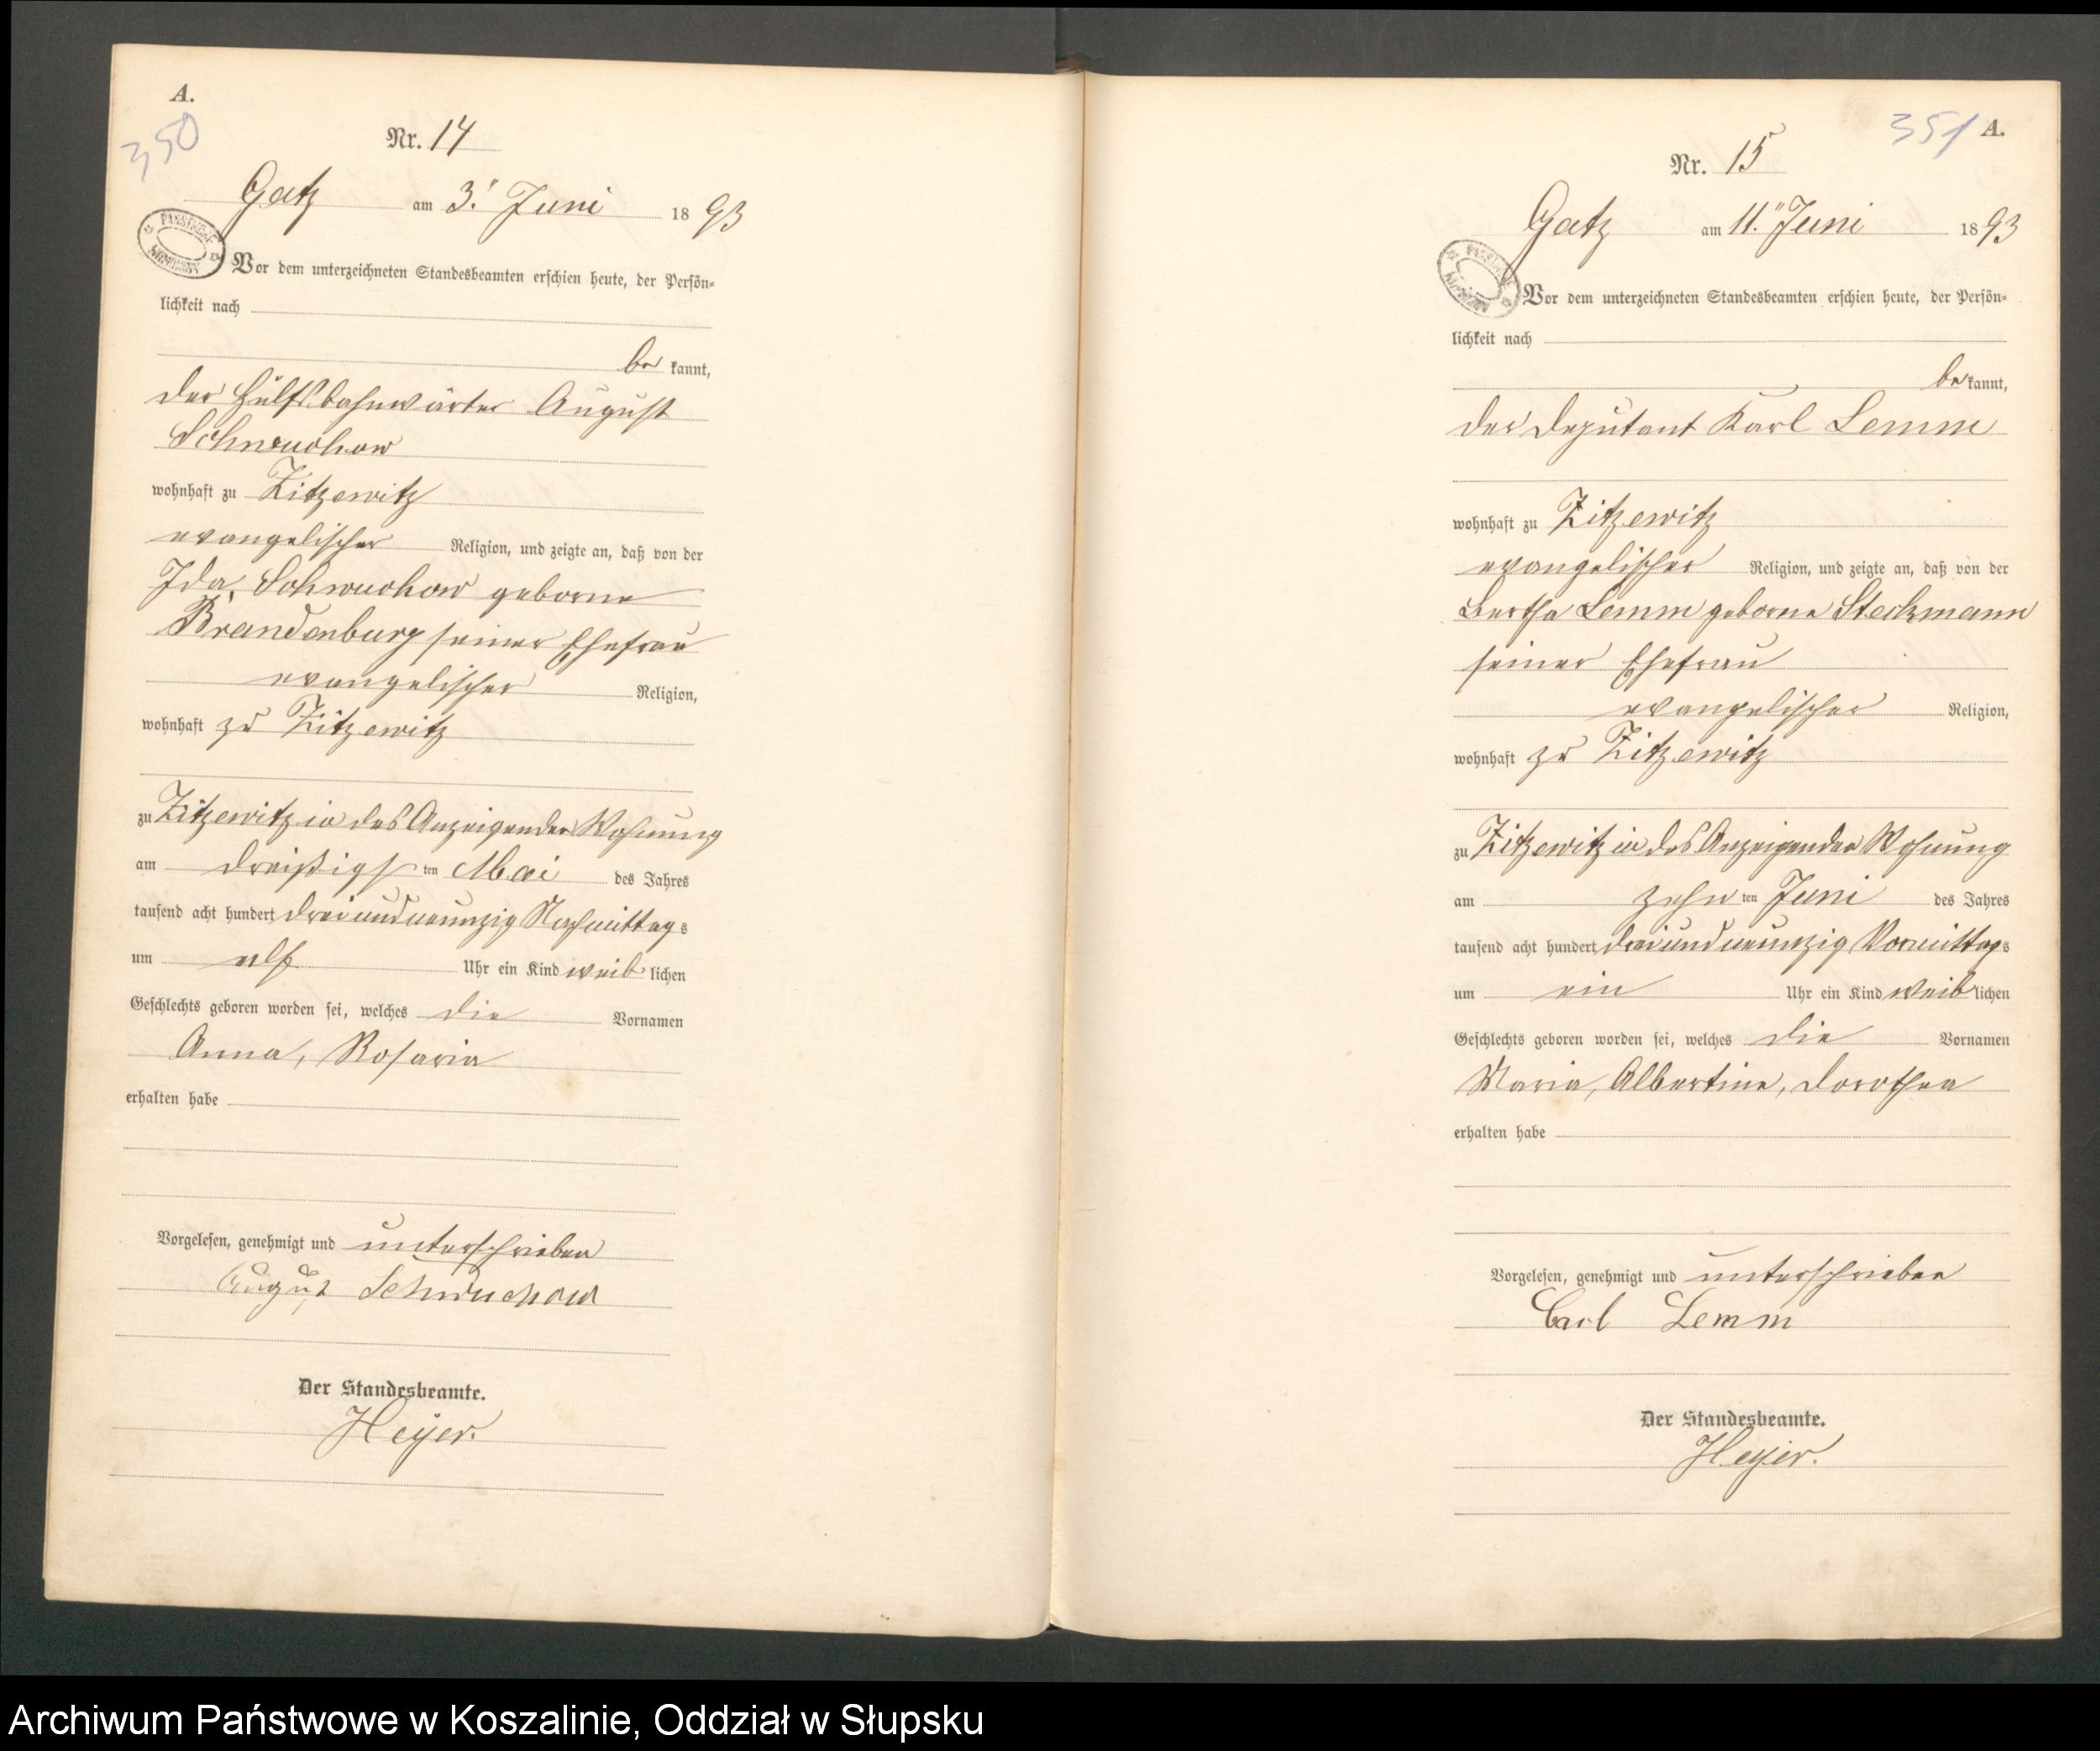 A.
350
Nr. 14
Gatz am 3. Juni 1893
Vor dem unterzeichneten Standesbeamten erschien heute, der Persön-
lichkeit nach
be kannt,
der Hülfsbahnwärter August
Schwuchow
wohnhaft zu Zitzewitz
evangelischer Religion, und zeigte an, daß von der
Ida, Schwuchow geborne
Brandenburg seiner Ehefrau
evangelischer Religion,
wohnhaft zu Zitzewitz
zu Zitzewitz in des Anzeigenden Wohnung
am dreißigsten Mai des Jahres
tausend acht hundert dreiundneunzig Nachmittags
um elf Uhr ein Kind weiblichen
Geschlechts geboren worden sei, welches die Vornamen
Anna, Rosaria
erhalten habe
Vorgelesen, genehmigt und unterschrieben
August Schwuchow
Der Standesbeamte.
Heyer.
351 A.
Nr. 15
Gatz am 11. Juni 1893
Vor dem unterzeichneten Standesbeamten erschien heute, der Persön-
lichkeit nach
be kannt,
der Deputant Karl Lemm
wohnhaft zu Zitzewitz
evangelischer Religion, und zeigte an, daß von der
Bertha Lemm geborne Steckmann
seiner Ehefrau
evangelischer Religion,
wohnhaft zu Zitzewitz
zu Zitzewitz in des Anzeigenden Wohnung
am zehnten Juni des Jahres
tausend acht hundert dreiundneunzig Vormittags
um ein Uhr ein Kind weiblichen
Geschlechts geboren worden sei, welches die Vornamen
Maria, Albertine, Dorothea
erhalten habe
Vorgelesen, genehmigt und unterschrieben
Carl Lemm
Der Standesbeamte.
Heyer.
Archiwum Państwowe w Koszalinie, Oddział w Słupsku